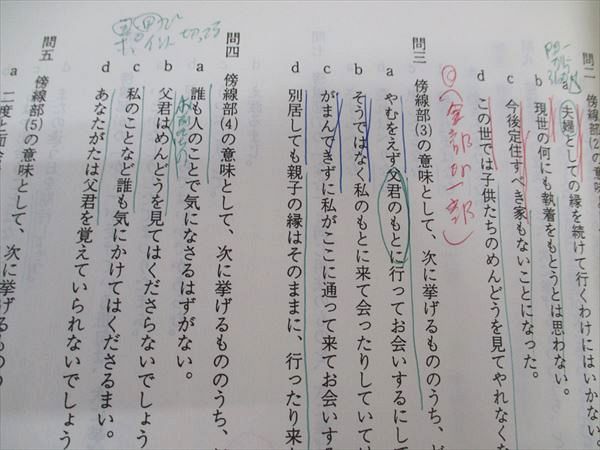 問二 傍線部(2)の意味として、次に挙げるもの
夫婦としての縁を続けて行くわけにはいかない。
b 現世の何にも執着をもとうとは思わない。
c 今後定住すべき家もないことになった。
d この世では子供たちのめんどうを見てやれなくな
(全部か一部)
問三 傍線部(3)の意味として、次に挙げるもののうち、ど
a やむをえず父君のもとに行ってお会いするにして
b そうではなく私のもとに来て会ったりしていては
c がまんできずに私がここに通って来てお会いす
d 別居しても親子の縁はそのままに、行ったり来
切ってる
問四 傍線部(4)の意味として、次に挙げるもののうち、
a 誰も人のことで気になさるはずがない。
b 父君はめんどうを見てはくださらないでしょう
c 私のことなど誰も気にかけてはくださるまい。
d あなたがたは父君を覚えていられないでしょう
問五 傍線部(5)の意味として、次に挙げるものの
a 二度と面会